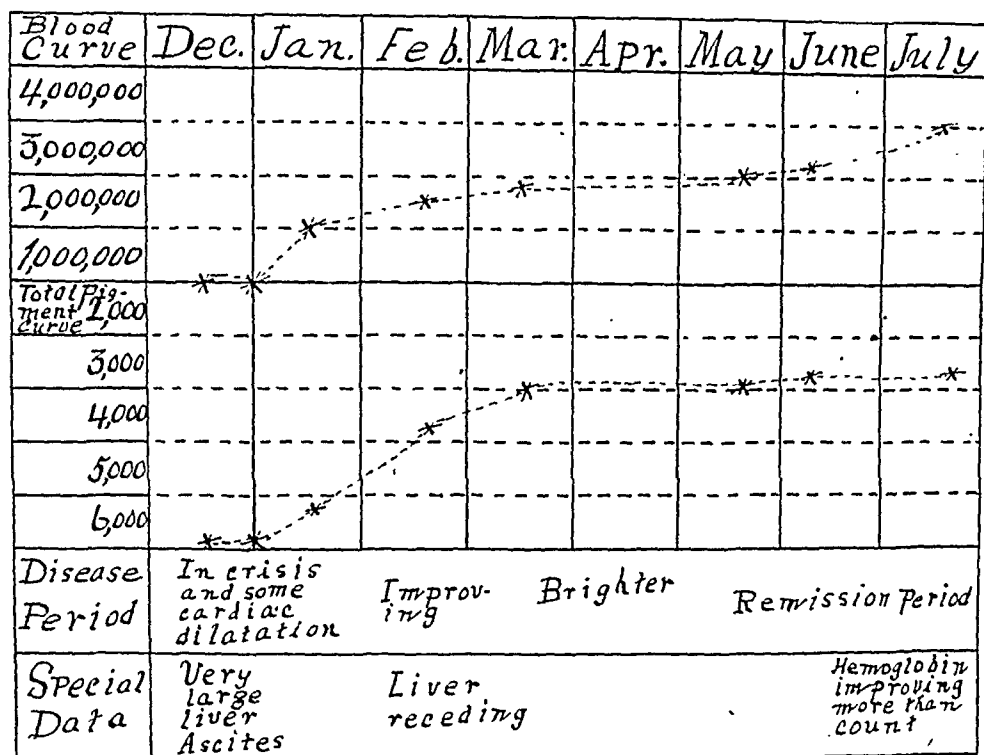 Blood
Curve Dec. Jan. Feb. Mar. Apr. May June July
4,000,000
3,000,000
2,000,000
1,000,000
Total Pig-
ment 1,000
Curve
3,000
4,000
5,000
6,000
Disease
Period
In crisis
and some
cardiac
dilatation
Improv-
ing
Brighter
Remission Period
Special
Data
Very
large
liver
Ascites
Liver
receding
Hemoglobin
improving
more than
count